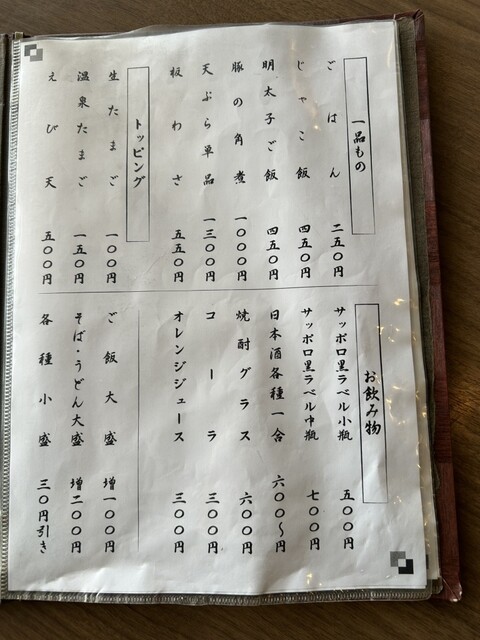 一品もの
ごはん 二五〇円
じゃこ飯 四五〇円
明太子ご飯 四五〇円
豚の角煮 一〇〇〇円
天ぷら単品 一三〇〇円
板わさ 五五〇円
トッピング
生たまご 一〇〇円
温泉たまご 一五〇円
えび天 五〇〇円
お飲み物
サッポロ黒ラベル小瓶 五〇〇円
サッポロ黒ラベル中瓶 七〇〇円
日本酒各種一合 六〇〇〜円
焼酎グラス 六〇〇円
コーラ 三〇〇円
オレンジジュース 三〇〇円
ご飯大盛 増一〇〇円
そば・うどん大盛 増二〇〇円
各種小盛 三〇円引き